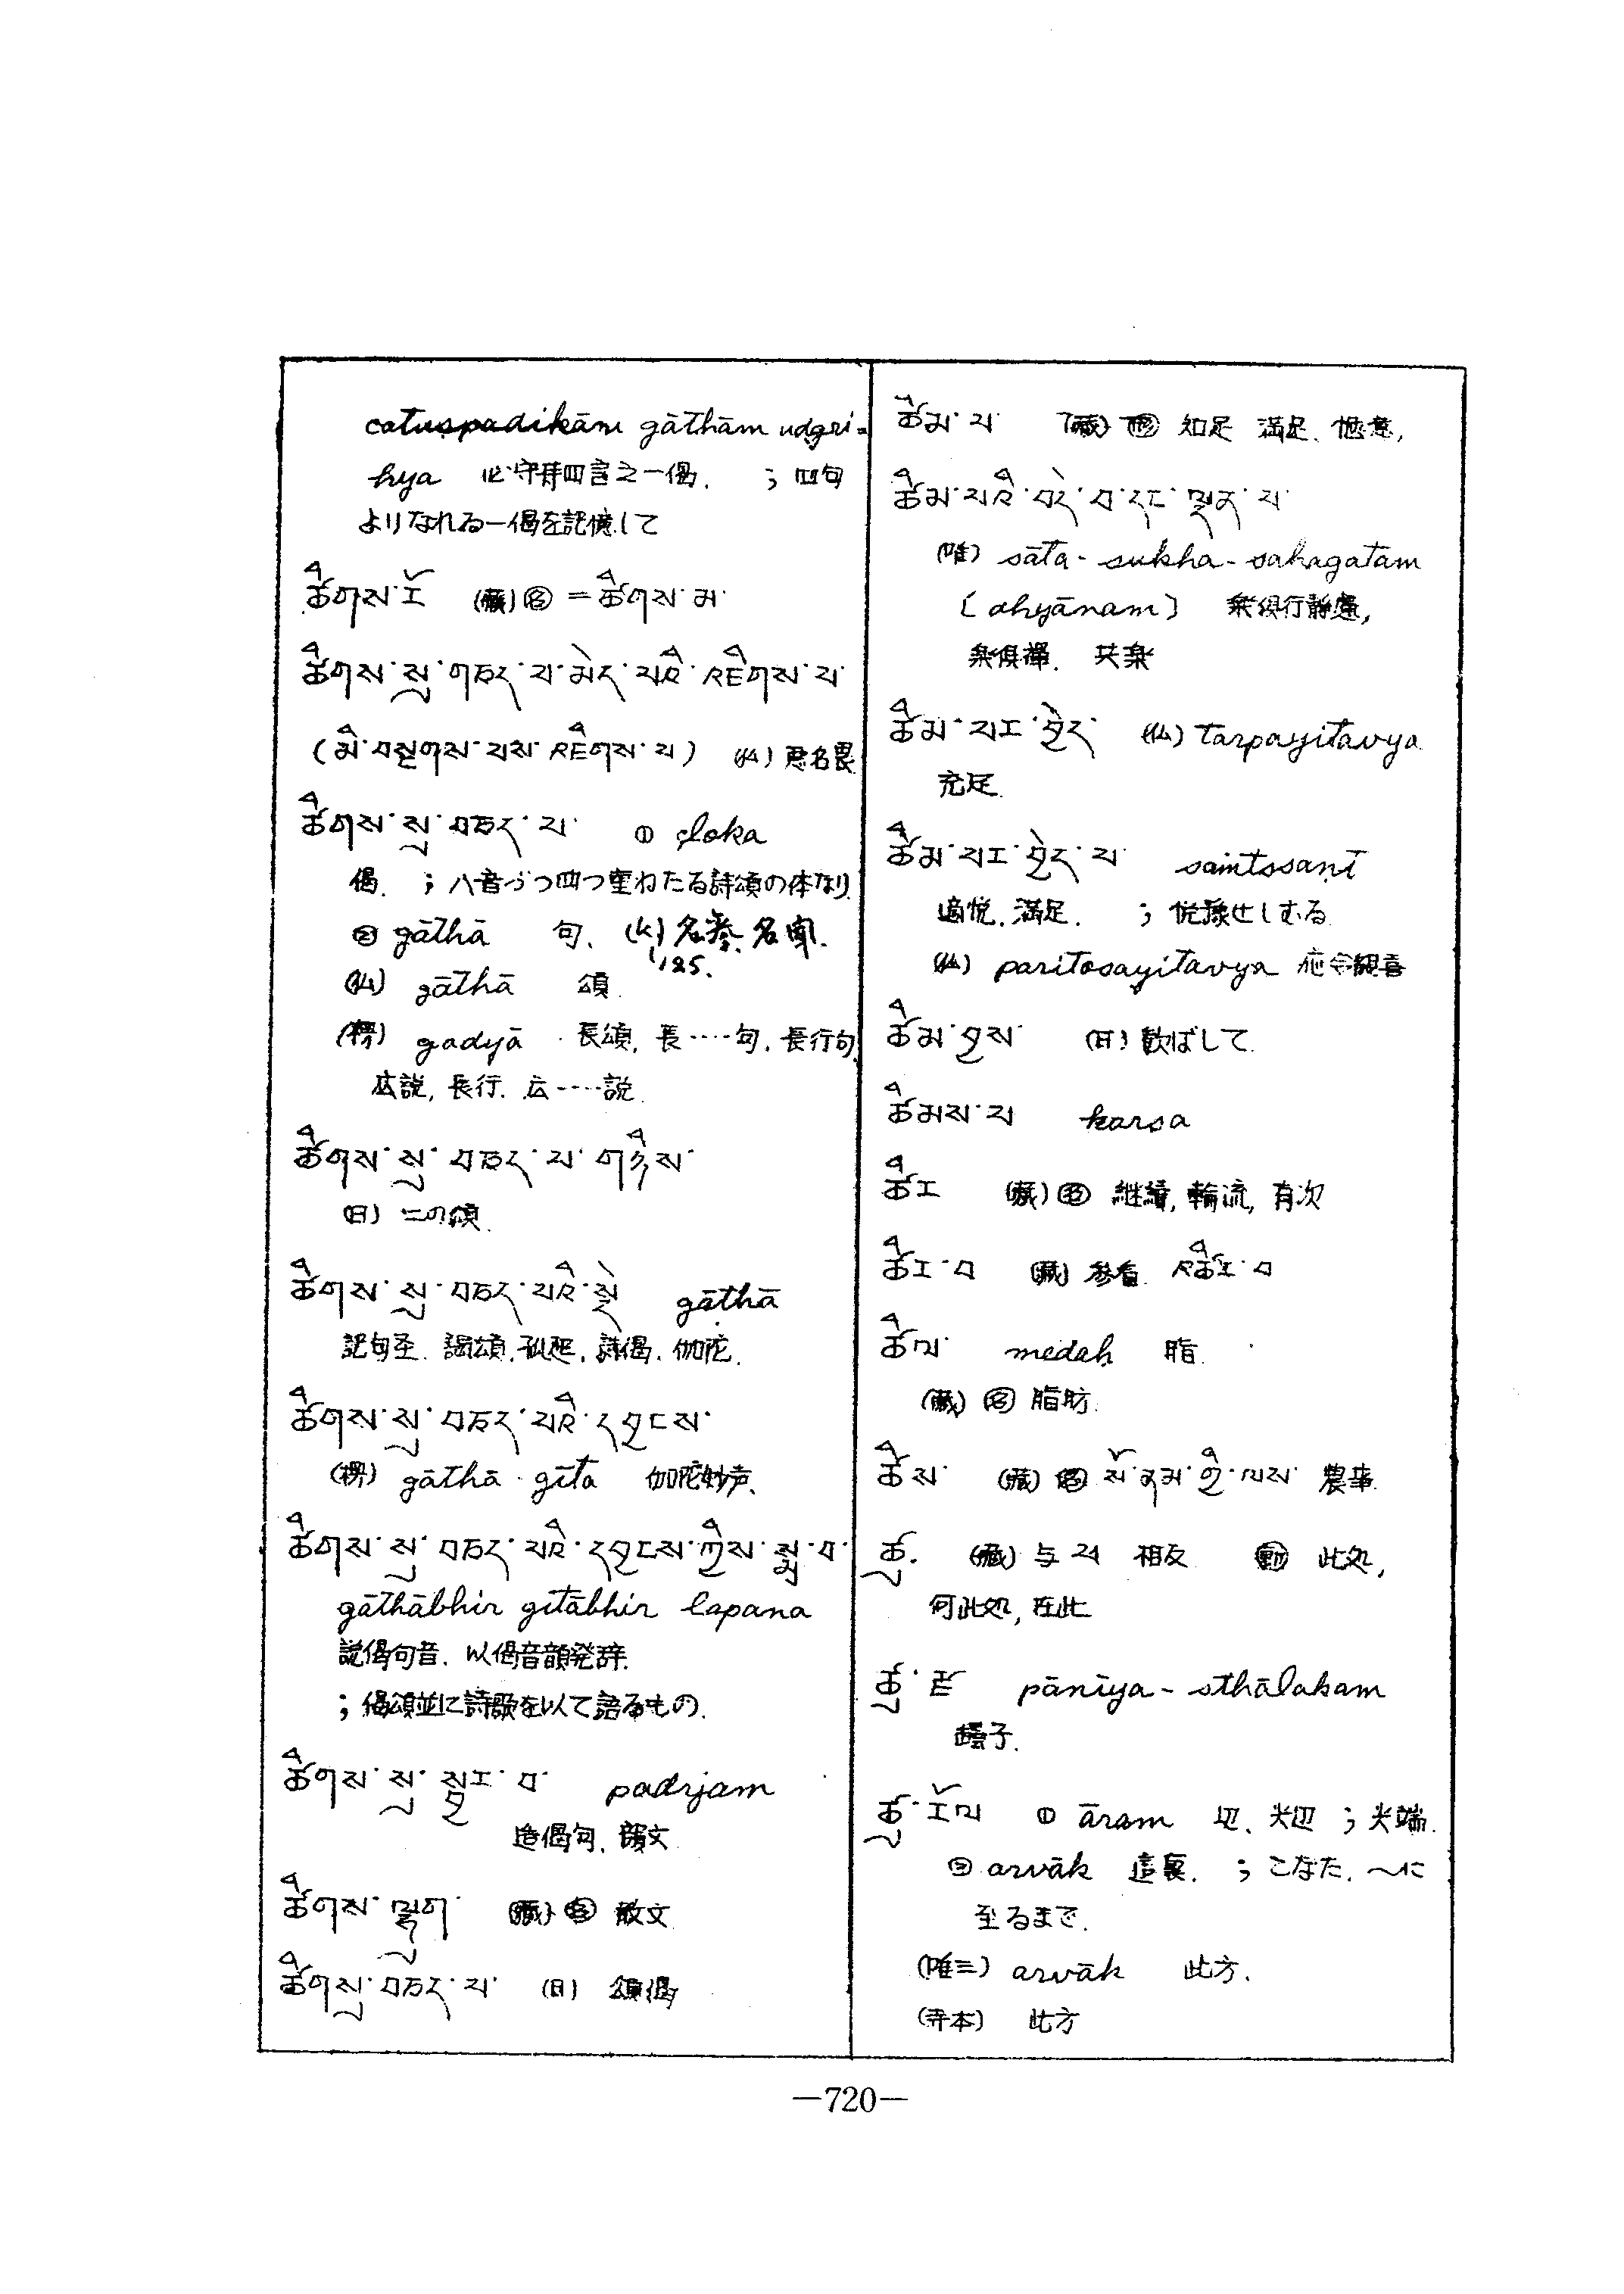 catuspadikām gāthām udgri=
hya 必守持四言之一偈. ; 四句
よりなれる一偈を記憶して
ཚིགས་རོ (藏)名 = ཚིགས་མ་
ཚིགས་སུ་གཅད་པ་མེད་པའི་འཇིགས་པ་
(མི་བསྔགས་པས་འཇིགས་པ) (仏) 悪名畏
ཚིགས་སུ་བཅད་པ་ ① çloka
偈. ; 八音づつ四つ重ねたる詩頌の体なり
② gāthā 句. (k) 名誉. 名聞.
1,125.
(仏) gāthā 頌.
(楞) gadyā 長頌, 長‥‥句, 長行句
広説, 長行. 広‥‥説.
ཚིགས་སུ་བཅད་པ་གཉིས་
(日) 二の頌.
ཚིགས་སུ་བཅད་པའི་སྡེ gāthā
記句. 偈頌. 詩偈. 伽陀.
ཚིགས་སུ་བཅད་པའི་དབྱངས་
(楞) gāthā-gīta 伽陀妙声.
ཚིགས་སུ་བཅད་པའི་དབྱངས་ཀྱིས་སྨྲ་བ་
gāthābhir gitābhir lapana
説偈句音. 以偈音韻発辞.
; 偈頌並に詩歌を以て語るもの.
ཚིགས་སུ་སྦྱར་བ་ padyam
造偈句. 韻文.
ཚིགས་ལྷུག་ (藏) 名 散文
ཚིགསུ་བཅད་པ་ (日) 頌偈
ཚིམ་པ་ (藏) 形 知足 満足. 惬意,
ཚིམ་པའི་བདེ་བ་དང་ལྡན་པ་
(唯) sāta-sukha-sahagatam
〔dhyānam〕 楽俱行静慮,
楽俱禪. 共楽
ཚིམ་པར་བྱེད་ (仏) tarpayitavya
充足.
ཚིམ་པར་བྱེད་པ་ saṁtosanī
適悦. 満足. ; 悦豫せしむる
(仏) paritosayitavya 應令歓喜
ཚིམ་བྱས་ (日) 歓ばして.
ཚིམས་པ harsa
ཚིར (藏) 名 継續, 輪流, 有次
ཚིར་བ (藏) 参看. འཚིར་བ
ཚིལ་ medaḥ 脂.
(藏) 名 脂肪.
ཚིས་ (藏) 名 སོ་ནམ་གྱི་ལས་ 農事.
ཚུ. (藏) 与 པ 相反 動 此処,
何此処, 在此
ཚུ་ཇོ pānīya-sthālakam
子.
ཚུ་རོལ ① āram 辺. 尖辺 ; 尖端.
② arvāk 這裏. ; こなた. ～に
至るまで.
(唯三) arvāk 此方.
(寺本) 此方
—720—